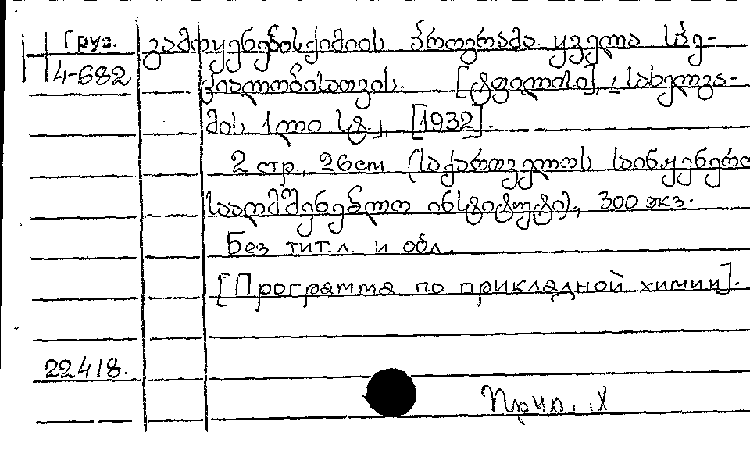 Груз.
4-682
გამოყენებ. ქიმიის პროგრამა ყველა სპე-
ციალობისათვის. [ტფილისი], სახელგა-
მის 1 ლი სტ., [1932].
2 стр, 26 cm (საქართველოს საინჟენერო
სააღმშენებლო ინსტიტუტი), 300 экз.
Без тит л. и обл.
[Программа по прикладной химии].
22418.
Прил. X